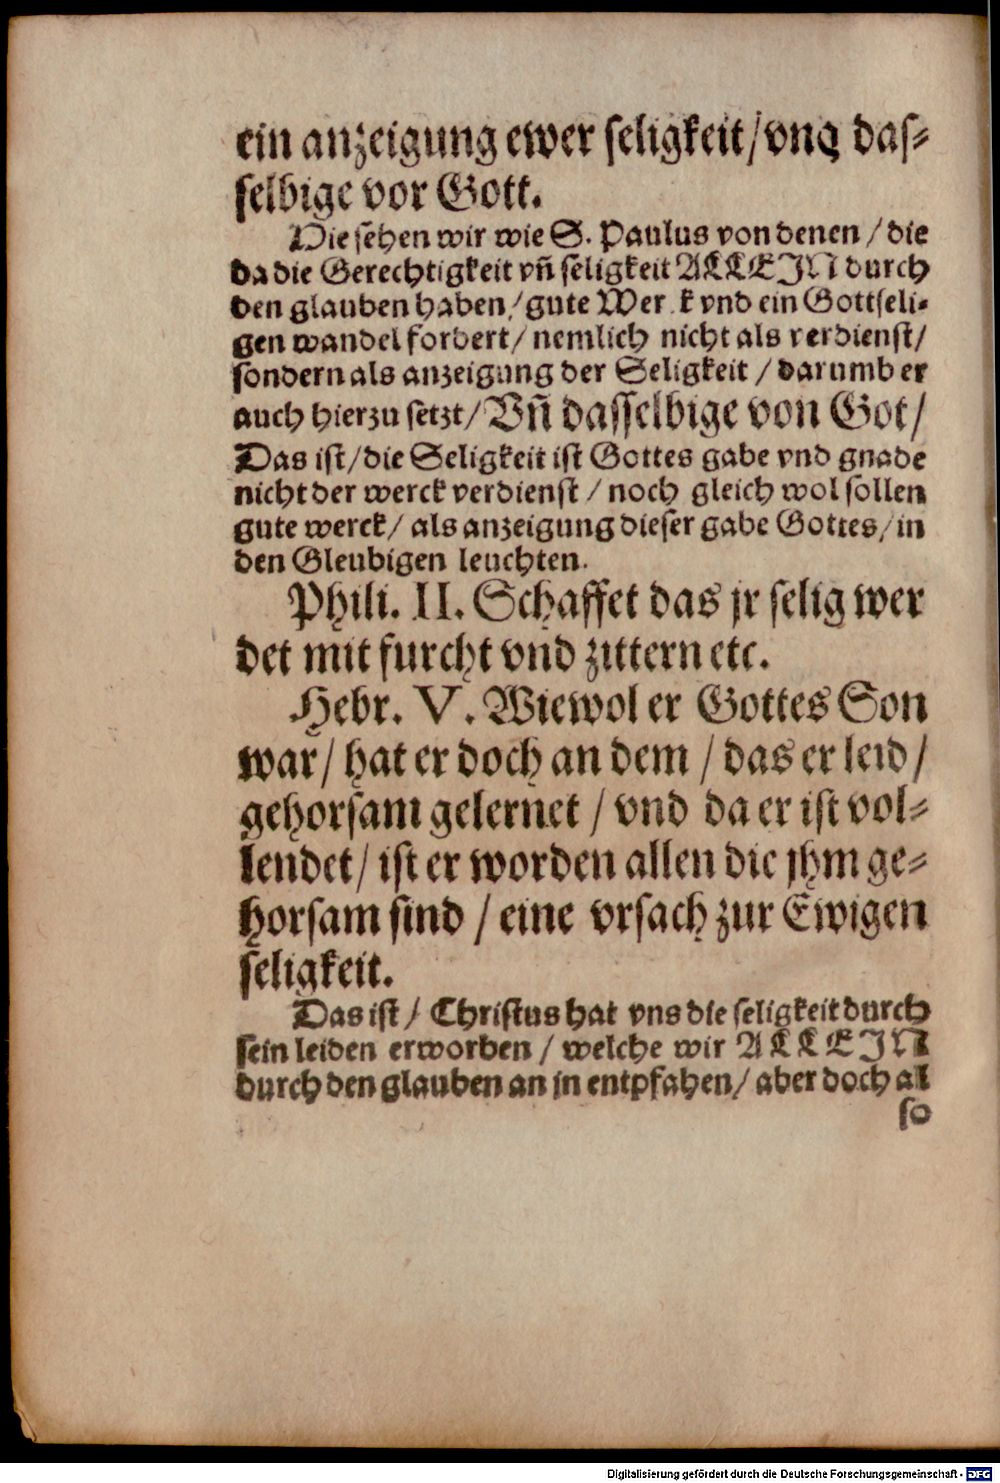 ein anzeigung ewer seligkeit/ vnd das-
selbige vor Gott.
Die sehen wir wie S. Paulus von denen / die
da die Gerechtigkeit vñ seligkeit ALLEIN durch
den glauben haben / gute Wer k vnd ein Gottseli-
gen wandel fordert/ nemlich nicht als verdienst/
sondern als anzeigung der Seligkeit / darumb er
auch hierzu setzt/ Vñ dasselbige von Got/
Das ist/ die Seligkeit ist Gottes gabe vnd gnade
nicht der werck verdienst / noch gleich wol sollen
gute werck/ als anzeigung dieser gabe Gottes/ in
den Gleubigen leuchten.
Phili. II. Schaffet das jr selig wer
det mit furcht vnd zittern etc.
Hebr. V. Wiewol er Gottes Son
war/ hat er doch an dem / das er leid /
gehorsam gelernet / vnd da er ist vol-
lendet/ ist er worden allen die jhm ge-
horsam sind / eine vrsach zur Ewigen
seligkeit.
Das ist / Christus hat vns die seligkeit durch
sein leiden erworben / welche wir ALLEIN
durch den glauben an jn entpfahen/ aber doch al
so
Digitalisierung gefördert durch die Deutsche Forschungsgemeinschaft - DFG